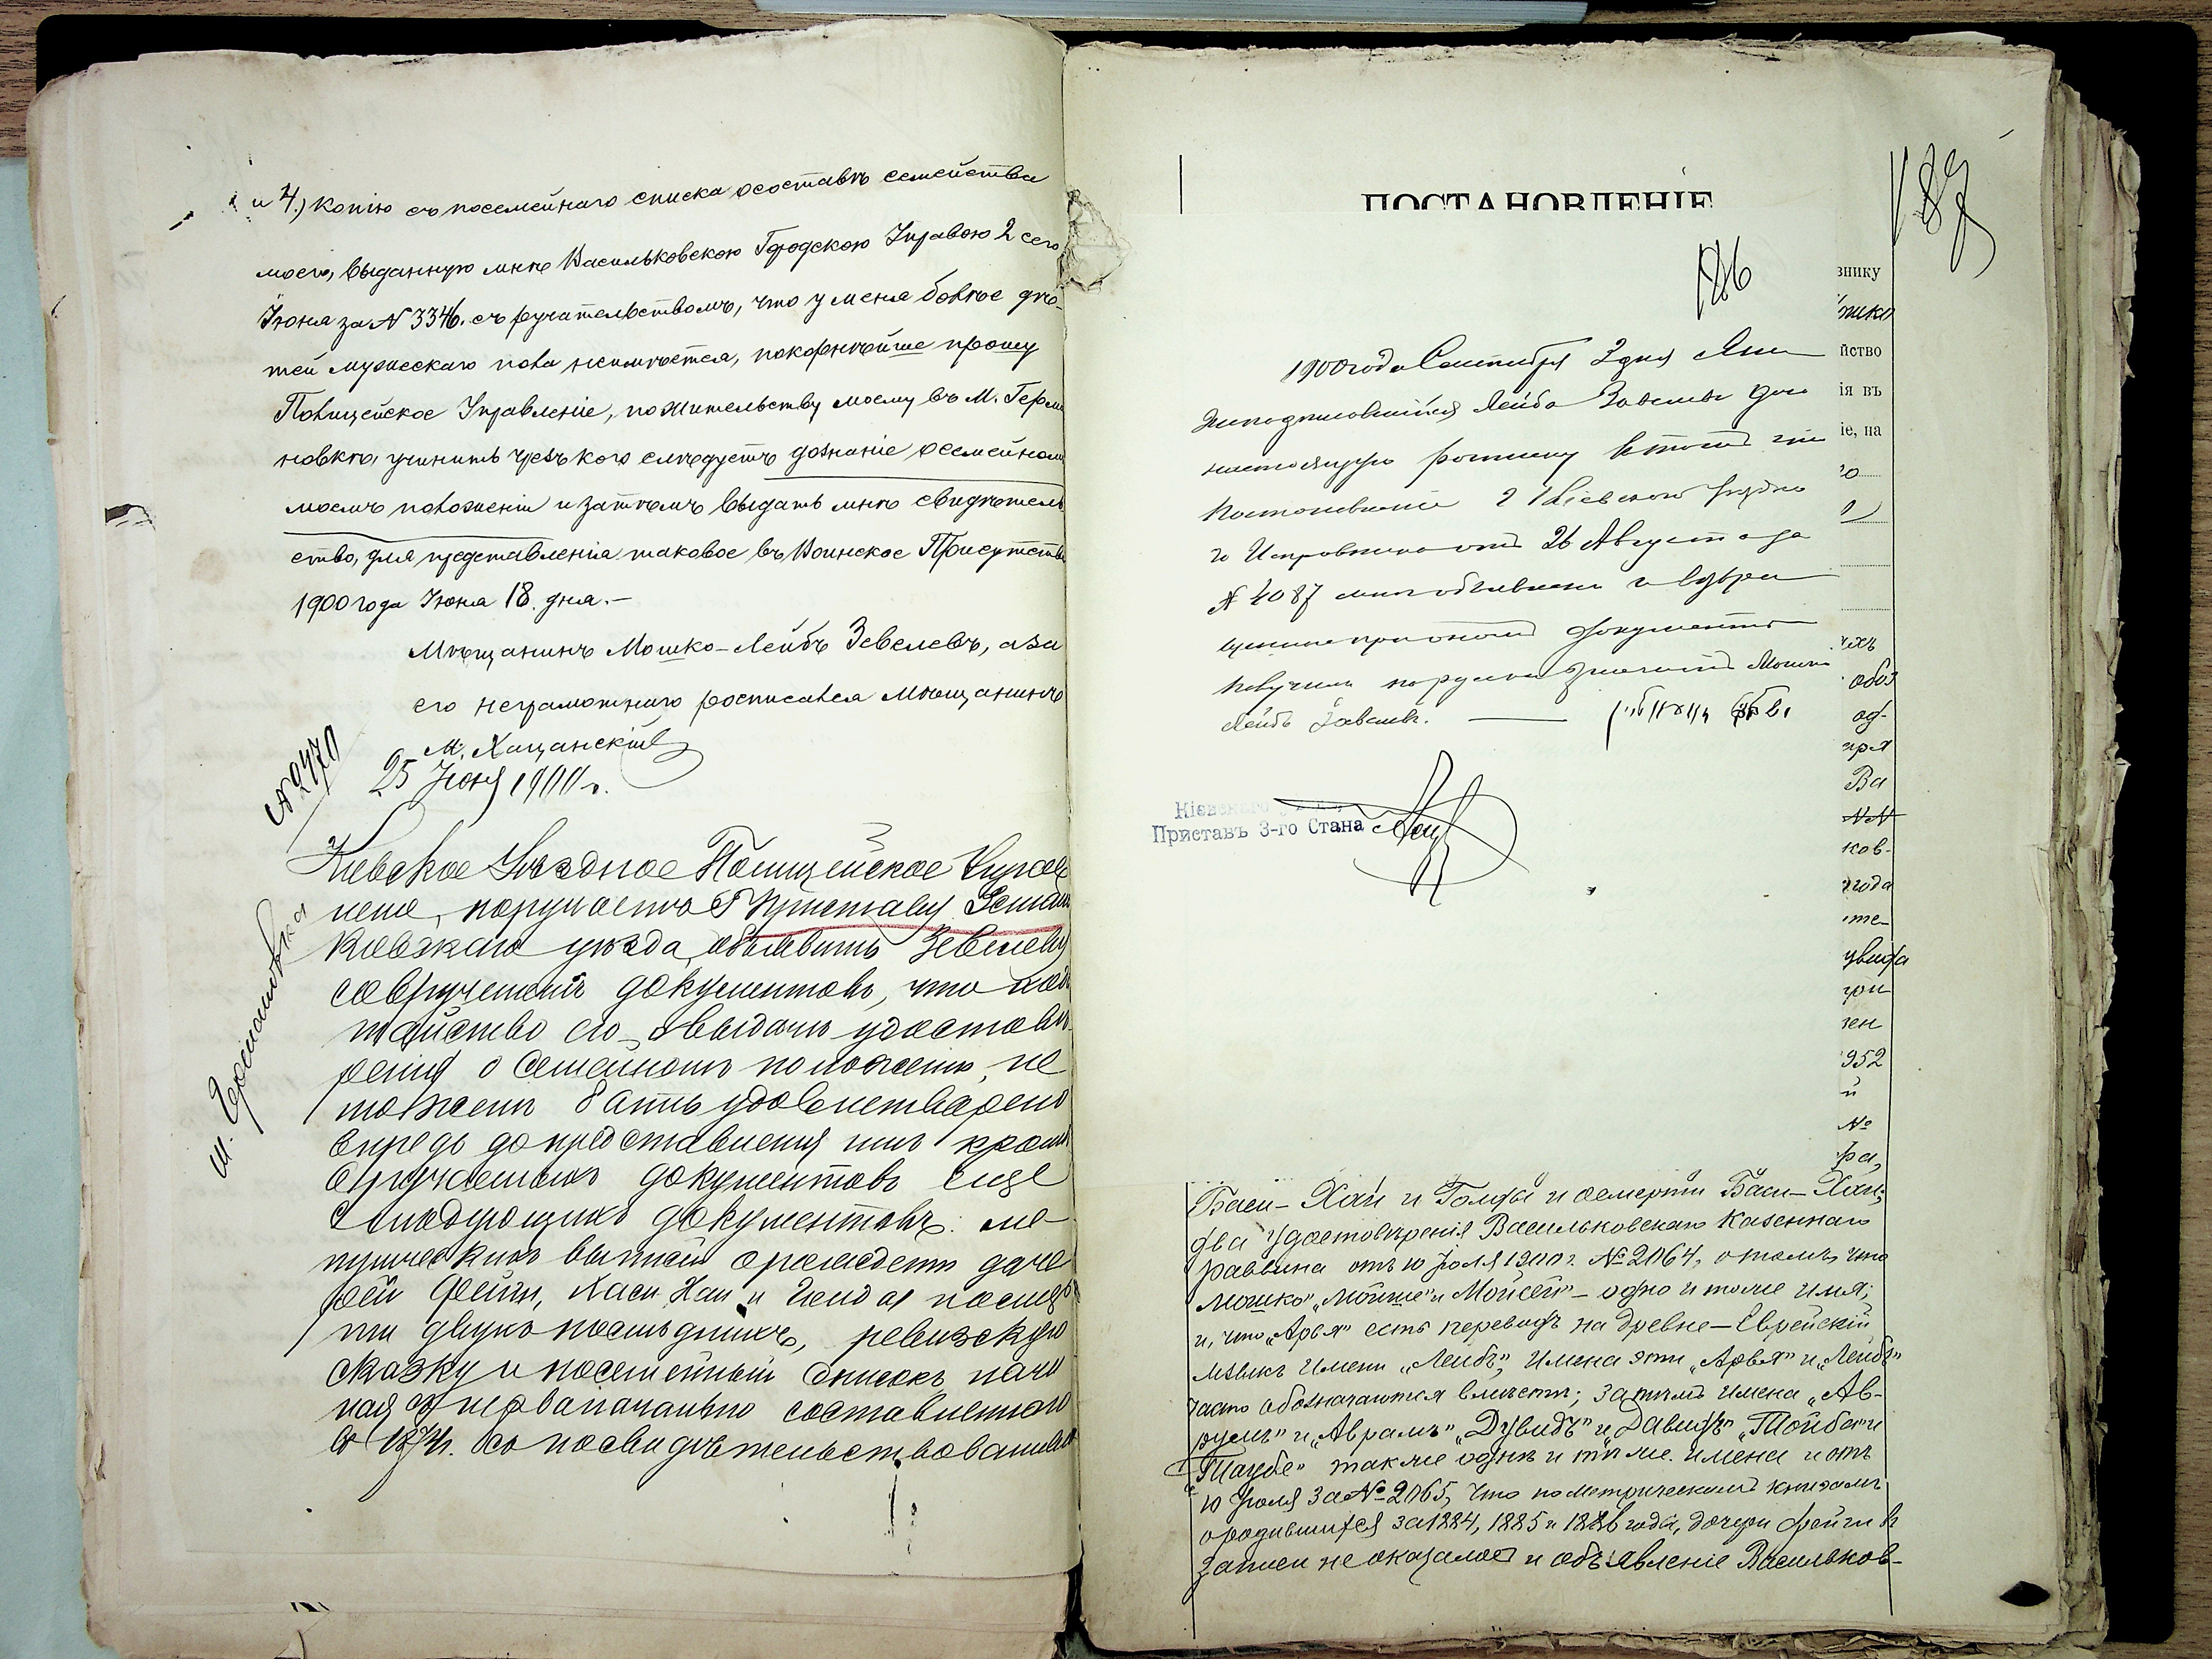 и 4,) копію съ посемейнаго списка о составѣ семейства
моего, выданную мнѣ Васильковскою Городскою Управою 2 сего
Іюня за N 3346. съ ручательствомъ, что у меня болѣе дѣ-
тей мужескаго пола неимѣется, покорнѣйше прошу
Полицейское Управленіе, по жительству моему въ М. Герма
новкѣ, учинить чрезъ кого слѣдуетъ дознаніе о семейном
моемъ положеніи и затѣмъ выдать мнѣ свидѣтель
ство, для представленія таковое въ Воинское Присутстві
1900 года Іюня 18. дня.–
Мѣщанинъ Мошко-Лейбъ Зевелевъ, а за
его неграмотнаго росписался Мѣщанинъ
М. Хащанскій
25 Іюня 1900 г.
N 2470
м. Германовка
Кіевское Уѣздное Полицейское Управле
ніе, поручаетъ Г Приставу 3 стана
Кіевскаго уѣзда, объявить Зевелеву
со врученіемъ документовъ, что хода
тайство его о выдачѣ удостовѣ
ренія о семейномъ положеніи, не
можетъ быть удовлетворено
впредь до представленія имъ кромѣ
вручаемыхъ документовъ еще
слѣдующихъ документовъ: ме-
трическихъ выписей о рожденіи доче
рей Фейги, Хаси Хаи и и смер
ти двухъ послѣднихъ, ревизскую
сказку и посемейный списокъ начи
ная съ первоначально составленнаго
въ 1874 г. со посвидѣтельствованіи
ПОСТАНОВЛЕНІЕ
187
186
1900 года Сентября 3 дня Я ни
жеподписавшійся Лейба Зевелевъ даю
настоящую росписку въ томъ что
постановленіе Г Кіевскаго Уѣздна
го Исправника отъ 26 Августа за
№ 4087 мнѣ объявлено и возвра
щенные при ономъ документы
получилъ Мошко
Лейбъ Зевелевъ.
Кіевскаго
Приставъ 3-го Стана
знику
йство
ія въ
іе, на
го
ихъ
обоз
од-
пря
Ва
NN
ков-
года
те-
увида
при
ген
952
й
№
ра,
Баси-Хаи и Голды и осмерти Баси-Хаи;
два удостовѣренія Васильковскаго Казеннаго
раввина отъ 10 Іюля 1900 г. № 2064, о томъ, что
Мошко" „Мойше" и Мойсей" – одно и тоже имя;
и, что „Арья" есть переводъ на древне-Еврейскій
языкъ имени „Лейбъ", имена эти „Арья" и „Лейбъ"
часто обозначаются вмѣстѣ; затѣмъ имена „Ав-
румъ" и „Аврамъ" „Дувидъ" и „Давидъ" „Тойба" и
„Таубе" также однѣ и тѣ же имена и отъ
10 Іюля за № 2065, что по метрическимъ книгамъ
о родившихся за 1884, 1885 и 1886 года, дочери Фейги
записи не оказалось и объявленіе Васильков-